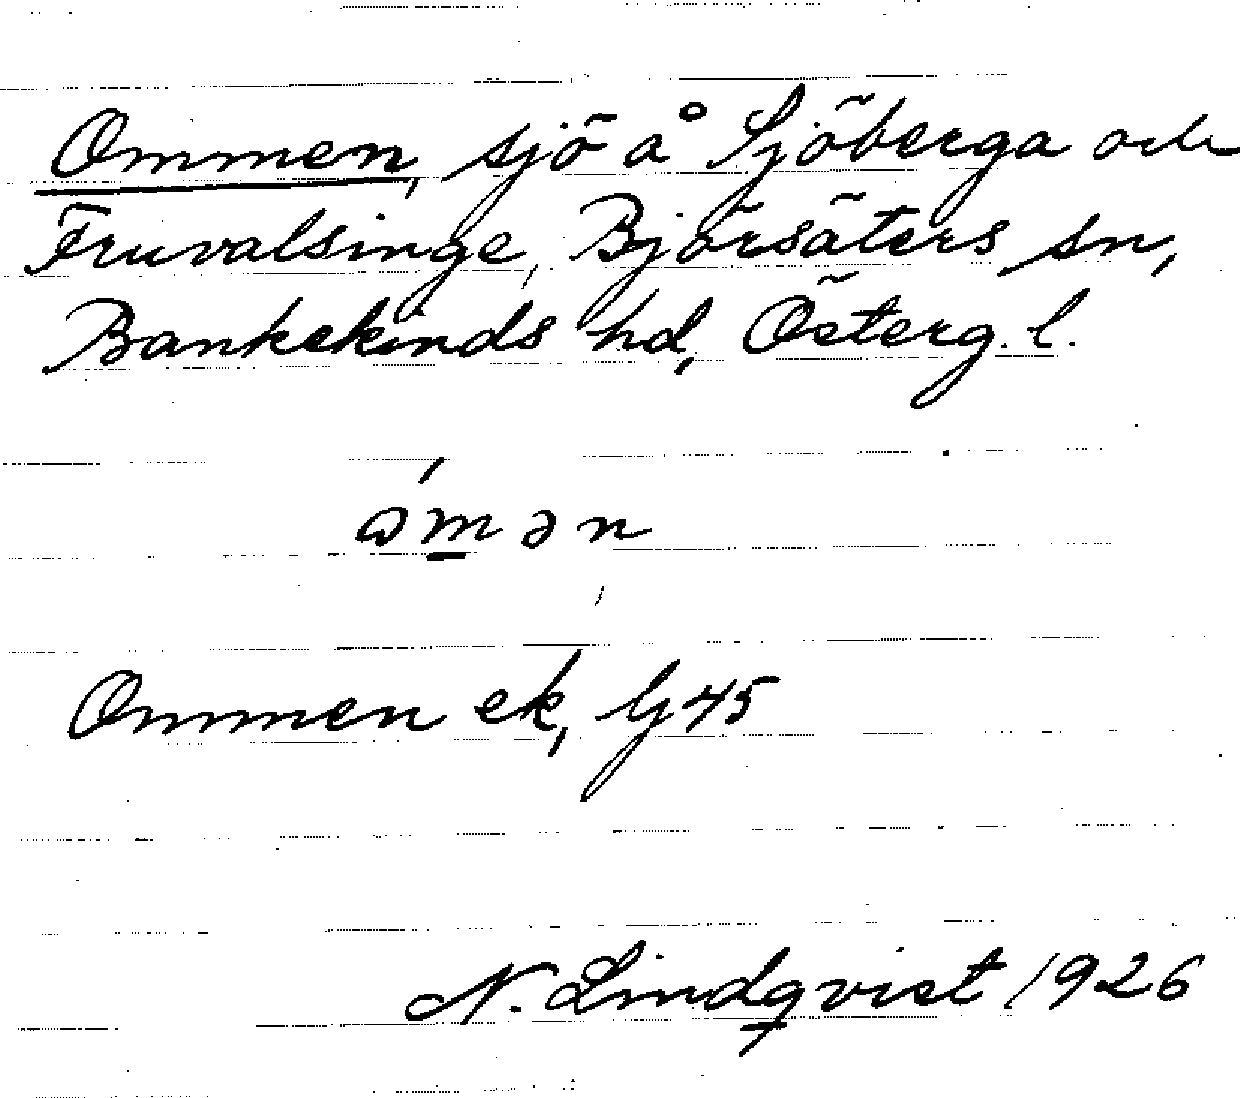 Ommen, sjö å Sjöberga och
Fruvalsinge, Björsäters sn,
Bankekinds hd, Österg. l.
Ommen ek, bj 45
N. Lindqvist 1926